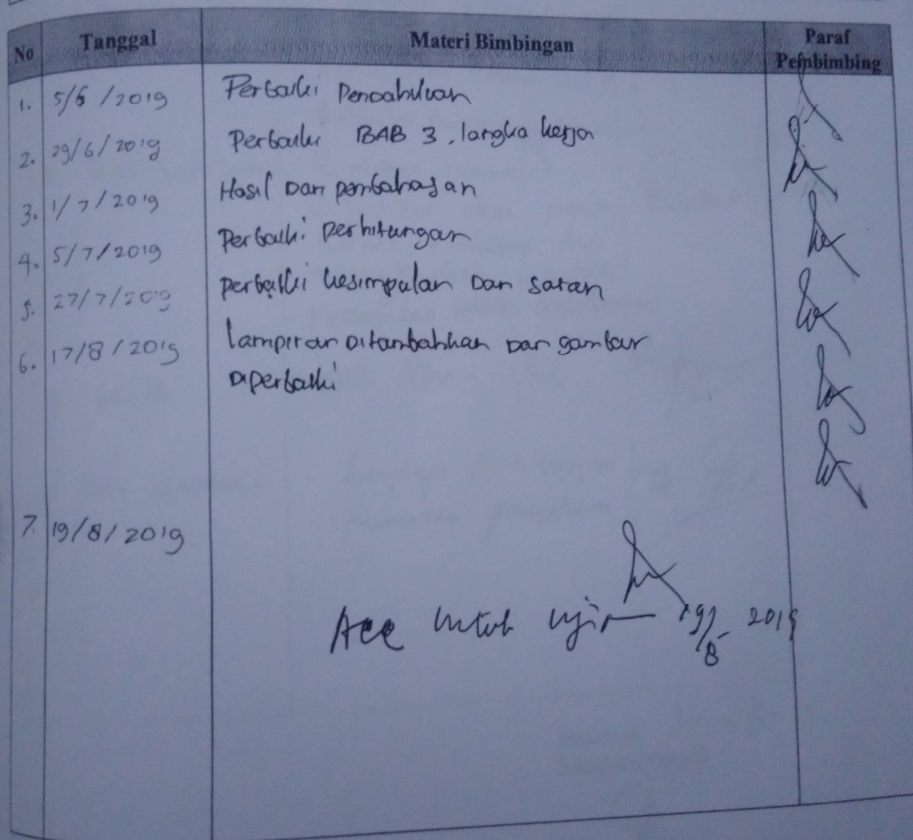 No Tanggal Materi Bimbingan Paraf Pembimbing
1. 5/6/2019 Perbaiki Pendahuluan
2. 29/6/2019 Perbaiki BAB 3, langka kerja
3. 1/7/2019 Hasil Dan pembahasan
4. 5/7/2019 Perbaiki perhitungan
5. 27/7/2019 perbaiki kesimpulan Dan saran
6. 17/8/2019 lampiran Ditambahkan Dan gambar
Diperbaiki
7. 19/8/2019
Acc untuk ujian 19/8 2019